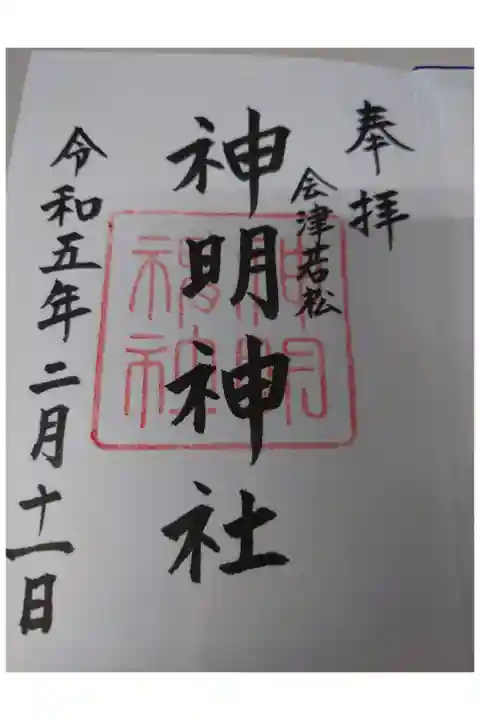 奉拝
会津若松
神明神社
令和五年二月十一日
神明
神社